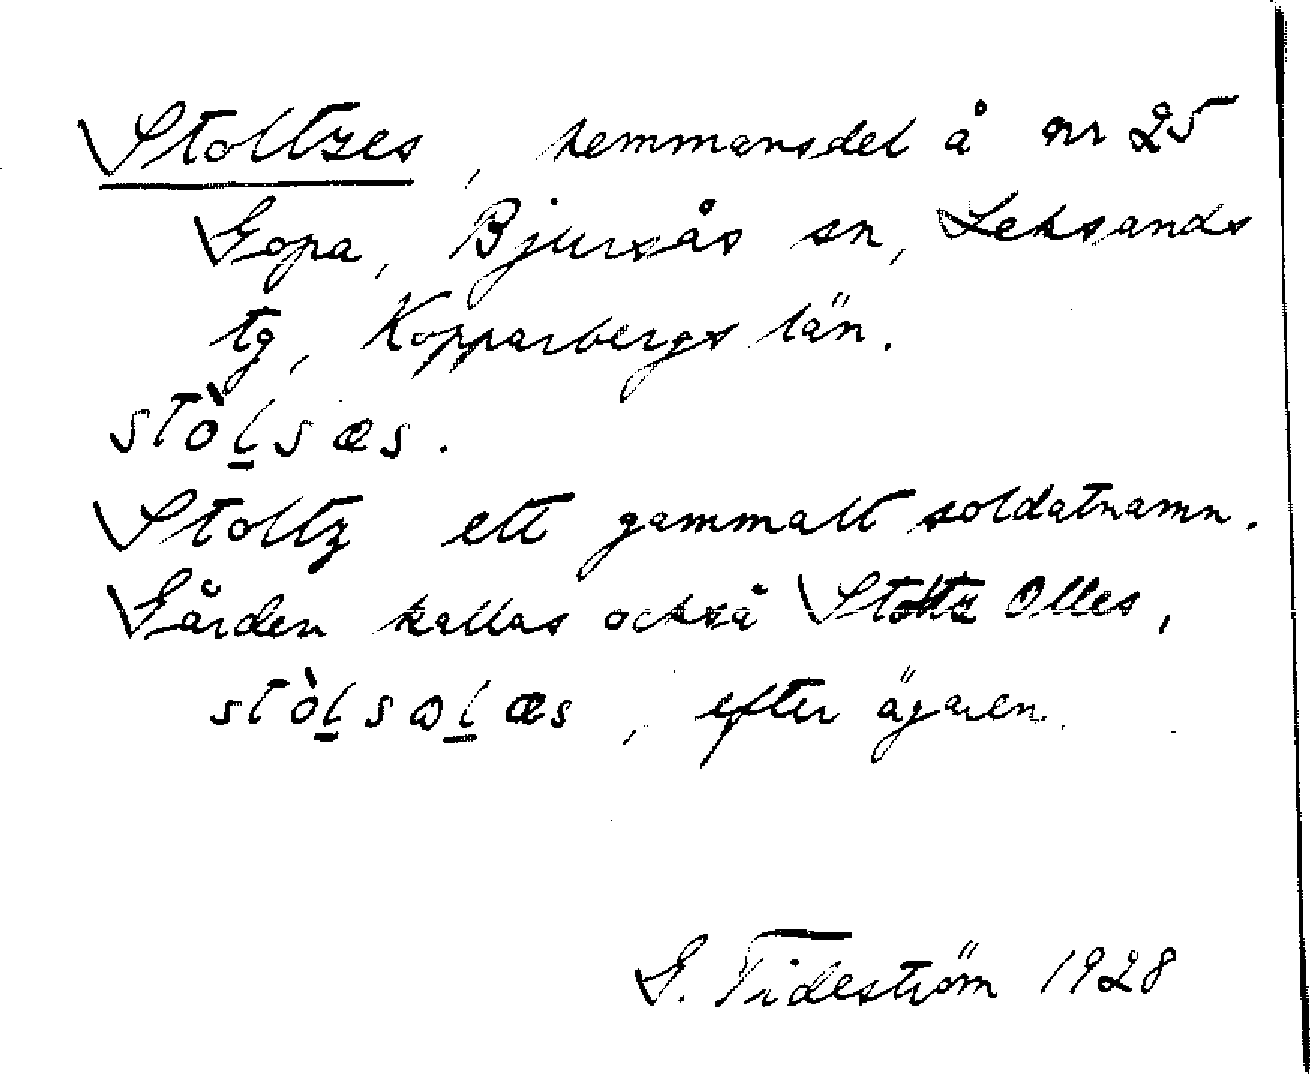 Stoltzes, hemmansdel å nr 25
Gopa, Bjursås sn, Leksands
tg, Kopparbergs län.
stòl̠sæs.
Stoltz ett gammalt soldatnamn.
Gården kallas också Stoltz Olles,
stòl̠sol̠æs, efter ägaren.
G. Tideström 1928